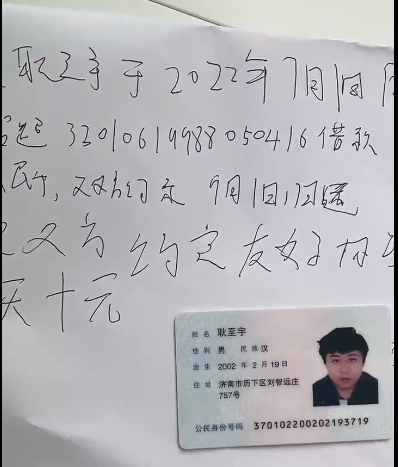 耿至宇于2022年7月1日
32010619988050416借款
双方约定 9月1日归还
双方约定友好
天十元
姓名 耿至宇
性别 男 民族 汉
出生 2002 年 2 月 19 日
住址 济南市历下区刘智远庄
757号
公民身份号码 370102200202193719